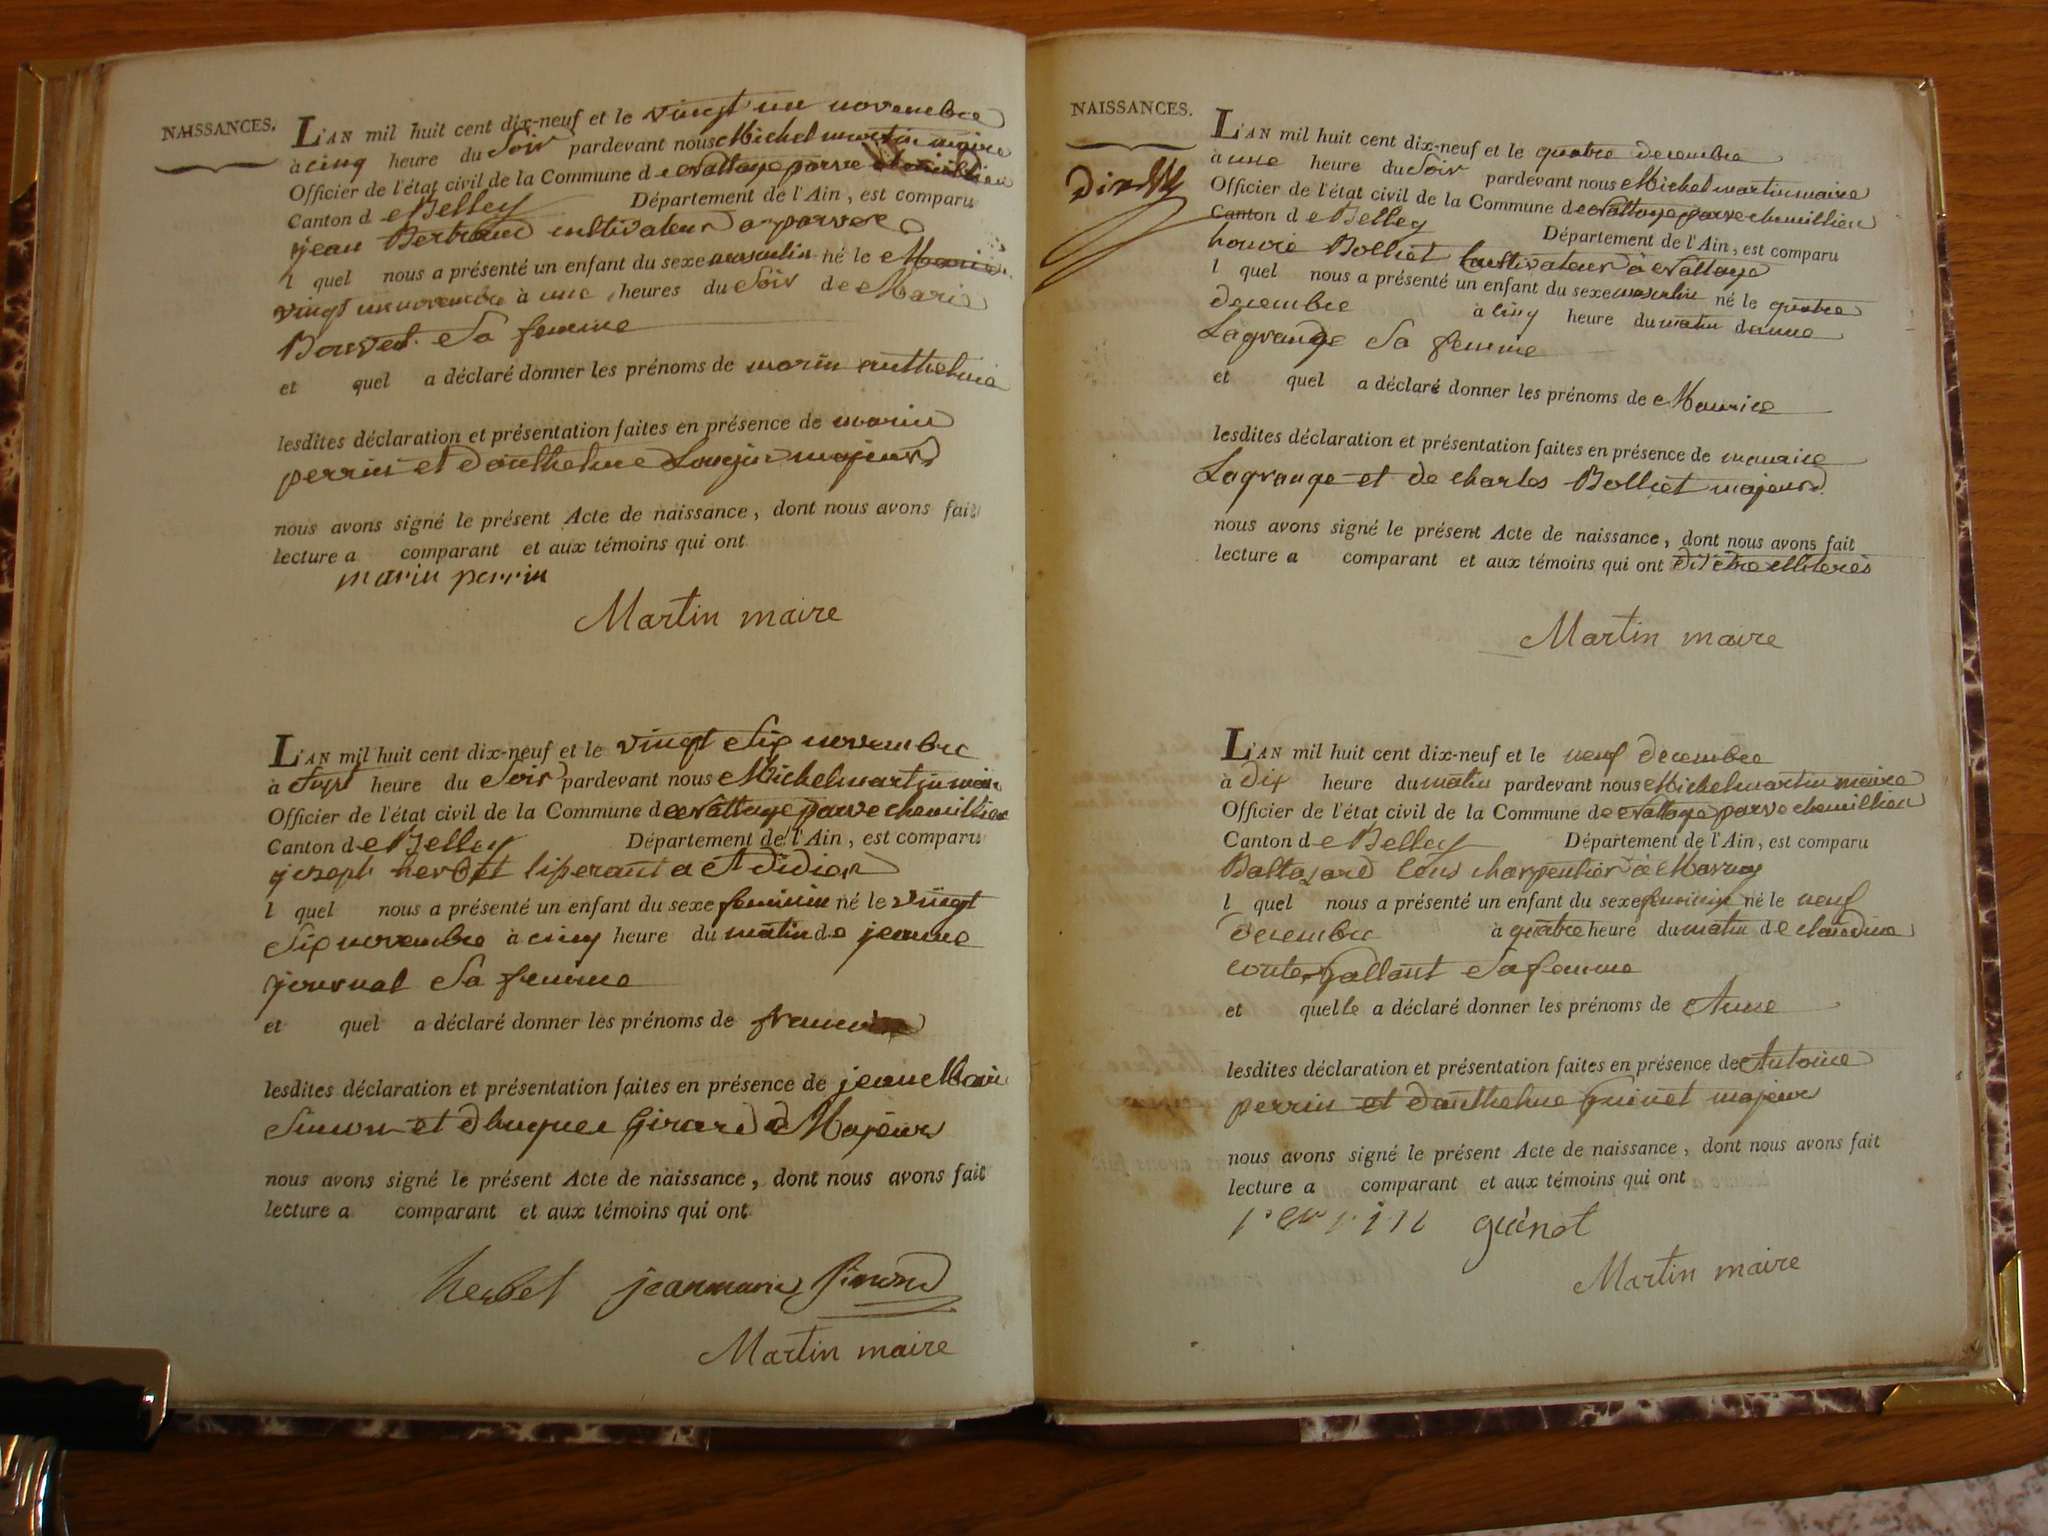 NAISSANCES.
L'AN mil huit cent dix-neuf et le vingt un novembre
à cinq heure du soir pardevant nous Michel martin maire
Officier de l'état civil de la Commune de Nattage parve
Canton de Belley Département de l'Ain, est comparu
jean Bertrand cultivateur a parve
l quel nous a présenté un enfant du sexe masculin né le
vingt un novembre à une heures du soir de Marie
Bouvet sa femme
et quel a déclaré donner les prénoms de marin anthelme
lesdites déclaration et présentation faites en présence de marin
perrin et d'anthelme majeurs
nous avons signé le présent Acte de naissance, dont nous avons fait
lecture a comparant et aux témoins qui ont
marin perrin
Martin maire
L'AN mil huit cent dix-neuf et le vingt six novembre
à sept heure du soir pardevant nous Michel martin maire
Officier de l'état civil de la Commune de Nattage parve chemillieu
Canton de Belley Département de l'Ain, est comparu
jozeph herbet a St didier
l quel nous a présenté un enfant du sexe feminin né le vingt
six novembre à cinq heure du matin de jeanne
journal sa femme
et quel a déclaré donner les prénoms de
lesdites déclaration et présentation faites en présence de jean Marie
Simon et d'hugues Girard Majeurs
nous avons signé le présent Acte de naissance, dont nous avons fait
lecture a comparant et aux témoins qui ont
herbet jeanmarie Simond
Martin maire
NAISSANCES.
L'AN mil huit cent dix-neuf et le quatre decembre
à une heure du soir pardevant nous Michel martin maire
Officier de l'état civil de la Commune de Nattage parve chemillieu
Canton de Belley Département de l'Ain, est comparu
Bolliet Cultivateur à Nattage
l quel nous a présenté un enfant du sexe masculin né le quatre
decembre à cinq heure du matin danne
Lagrange sa femme
et quel a déclaré donner les prénoms de Maurice
lesdites déclaration et présentation faites en présence de maurice
Lagrange et de charles Bolliet majeurs
nous avons signé le présent Acte de naissance, dont nous avons fait
lecture a comparant et aux témoins qui ont dit être illiterés
Martin maire
L'AN mil huit cent dix-neuf et le neuf decembre
à dix heure du matin pardevant nous Michel martin maire
Officier de l'état civil de la Commune de Nattage parve chemillieu
Canton de Belley Département de l'Ain, est comparu
Baltazard charpentier à
l quel nous a présenté un enfant du sexe feminin né le neuf
decembre à quatre heure du matin de claudine
sa femme
et quelle a déclaré donner les prénoms de Anne
lesdites déclaration et présentation faites en présence de Antoine
perrin et d'anthelme guinet majeurs
nous avons signé le présent Acte de naissance, dont nous avons fait
lecture a comparant et aux témoins qui ont
perrin guinet
Martin maire